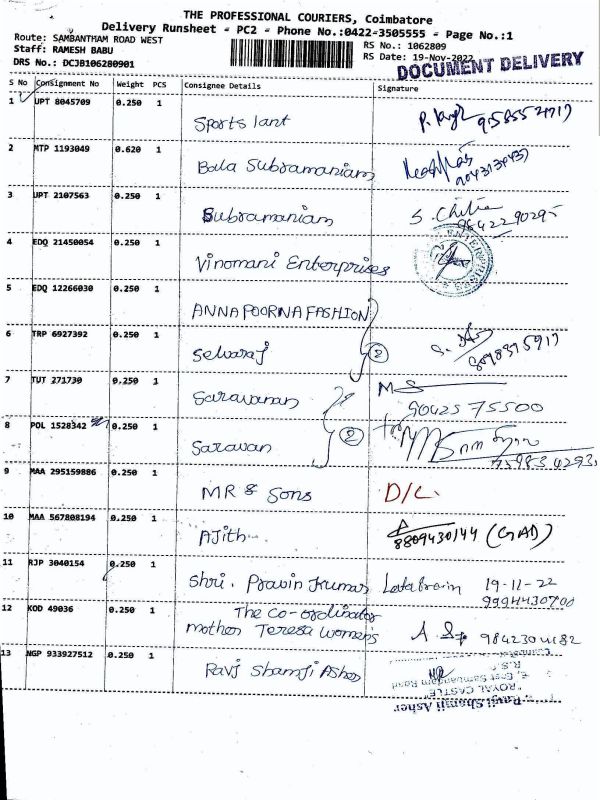 THE PROFESSIONAL COURIERS, Coimbatore
Delivery Runsheet - PC2 - Phone No.:0422-3505555 - Page No.:1
Route: SAMBANTHAM ROAD WEST
Staff: RAMESH BABU
DRS No.: DCJB106280901
RS No.: 1062809
RS Date: 19-Nov-2022
DOCUMENT DELIVERY
S No Consignment No Weight PCS Consignee Details Signature
1 UPT 8045709 0.250 1 Sports lant
2 MTP 1193049 0.620 1 Bala Subramaniam
3 UPT 2107563 0.250 1 Subramaniam
4 EDQ 21450054 0.250 1 Vinomani Enterprises
5 EDQ 12266030 0.250 1 ANNAPOORNA FASHION
6 TRP 6927392 0.250 1 Selvaraj 2
7 TUT 271730 0.250 1 Saravanan 90425 75500
8 POL 1528342 0.250 1 Saravan 2
9 MAA 295159886 0.250 1 MR & Sons D/C.
10 MAA 567808194 0.250 1 Ajith 8809430144 (GAD)
11 RJP 3040154 0.250 1 Shri. Pravin Kumar 19-11-22
9994430700
12 KOD 49036 0.250 1 The Co-ordinator
mother Teresa Womens
13 NGP 933927512 0.250 1 Ravj Shamji Asher
Ravji Shamji Asher
"ROYAL CASTLE"
R.S.